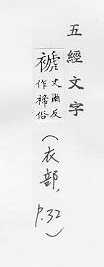 五經文字
褫 丈爾反
作禠俗
(衣部,
p.32)